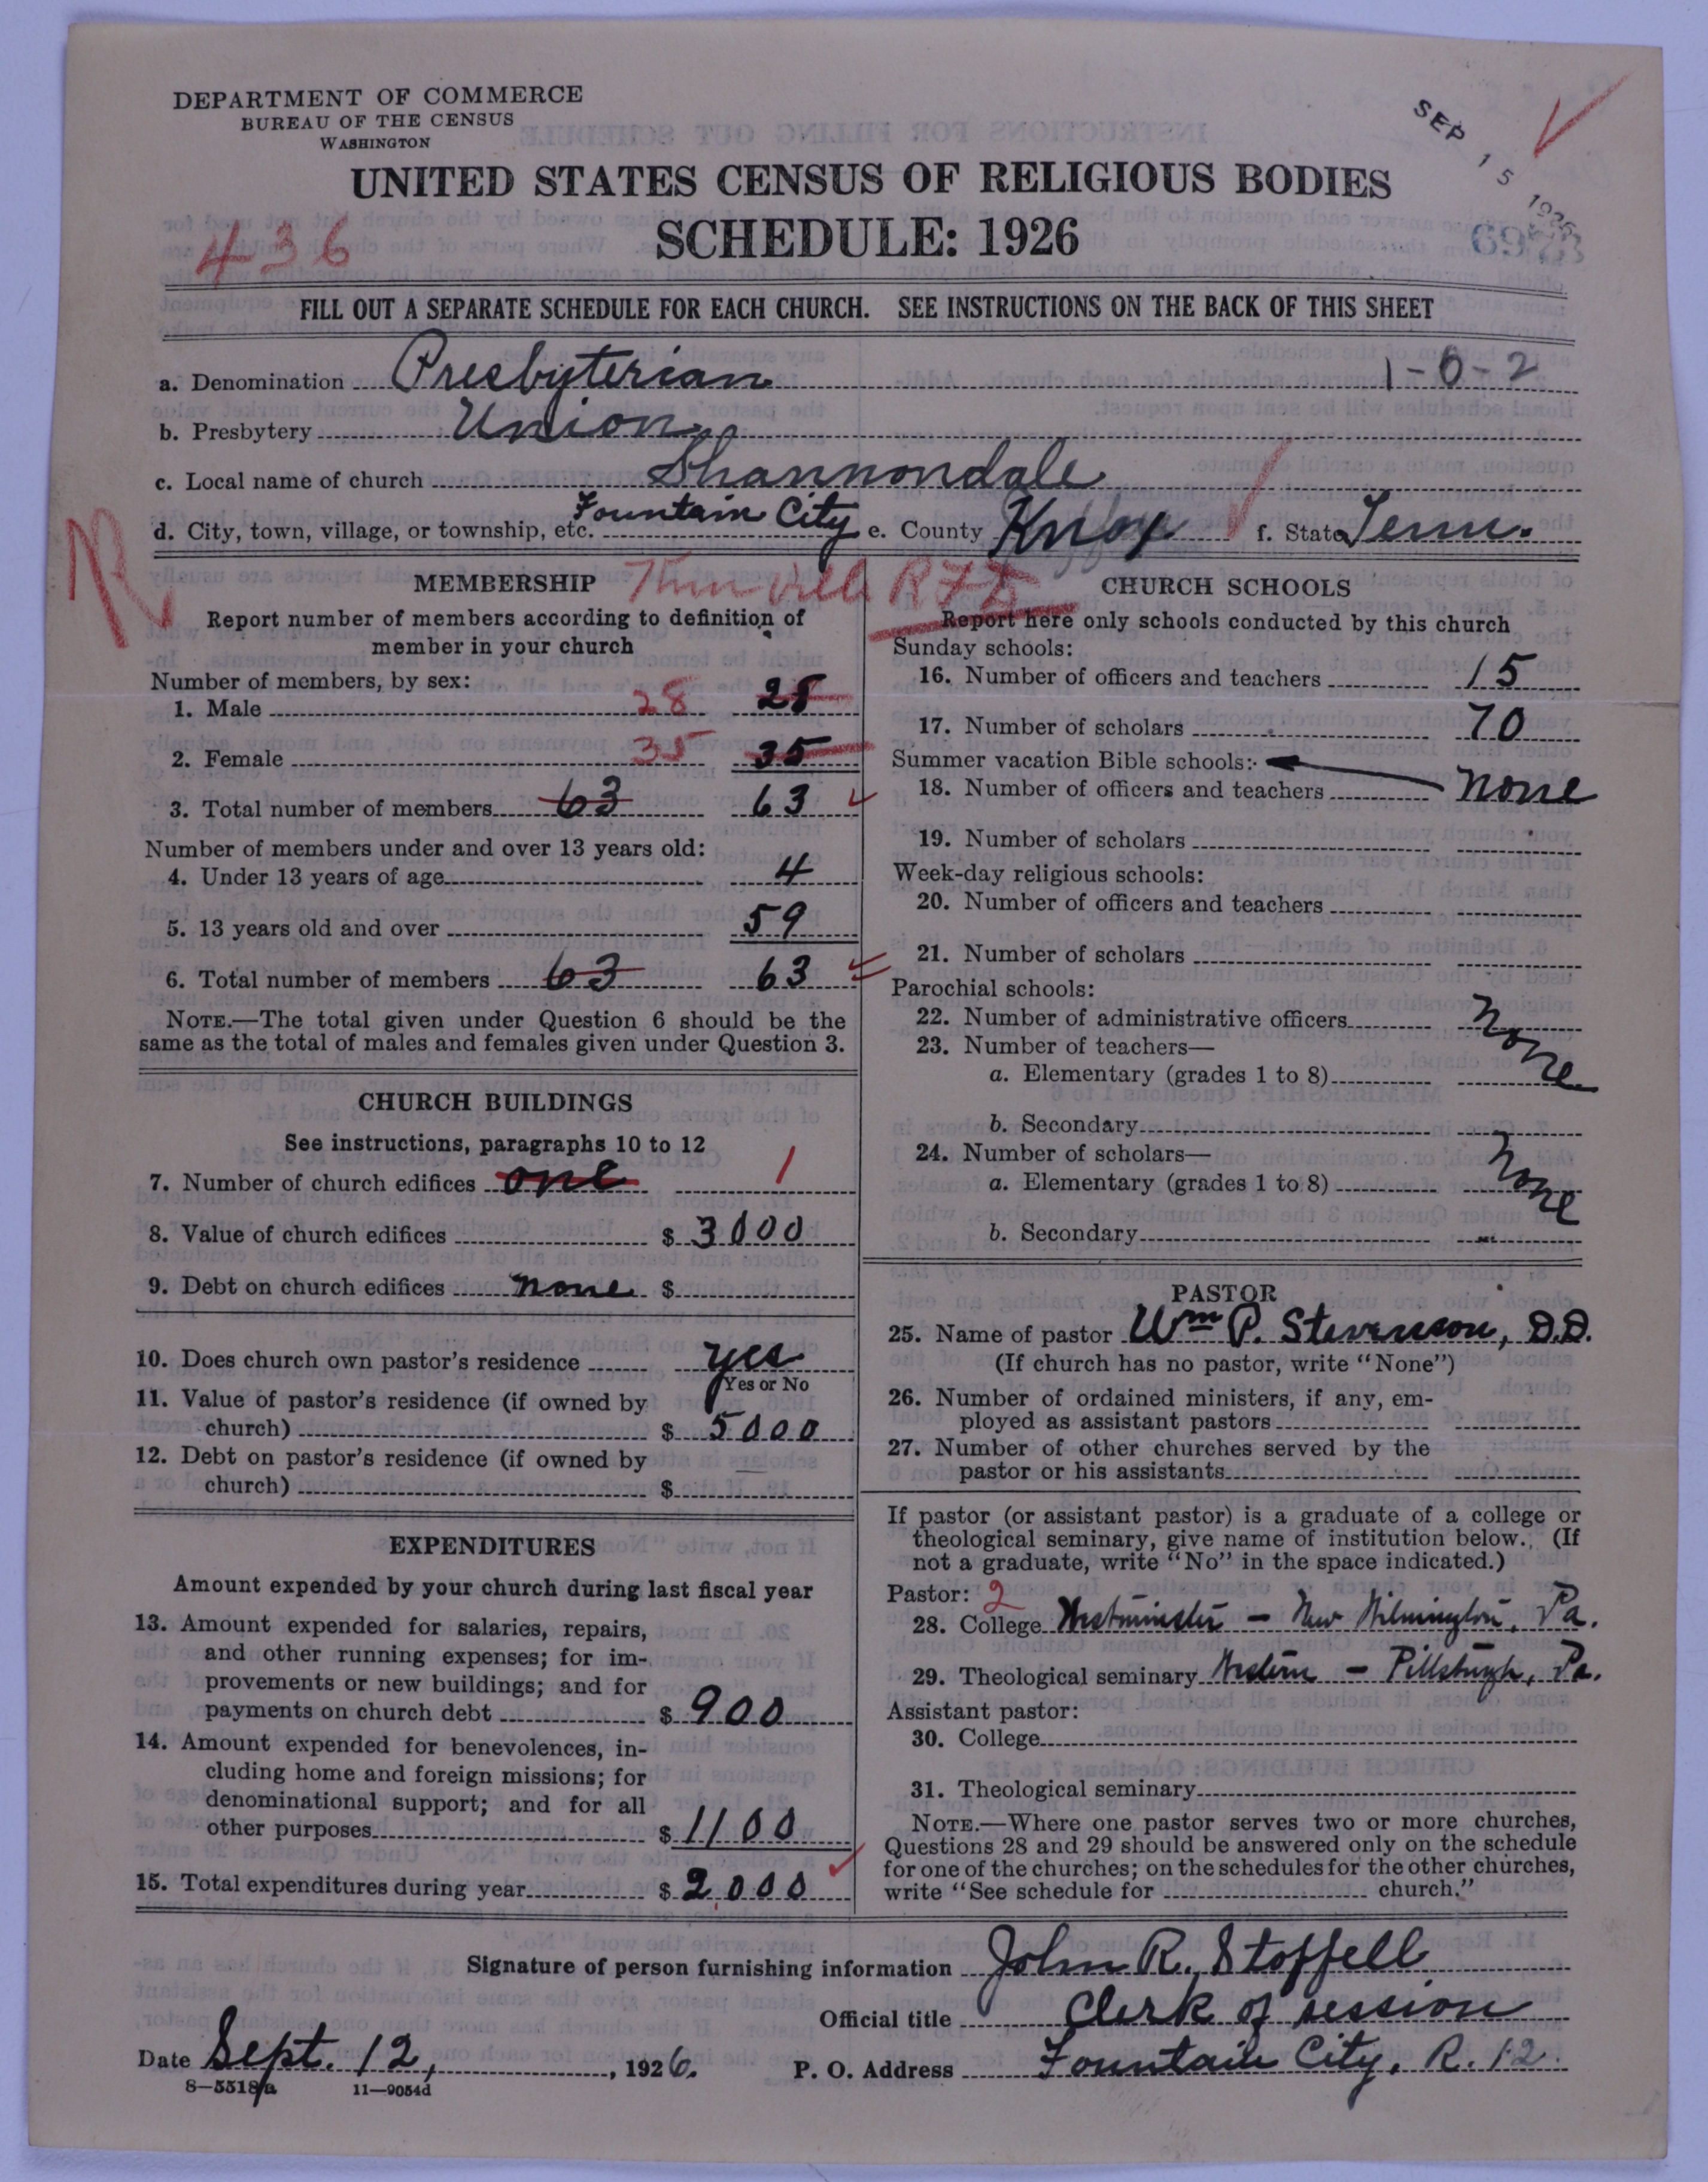 DEPARTMENT OF COMMERCE
BUREAU OF THE CENSUS
WASHINGTON
SEP 15 1926
UNITED STATES CENSUS OF RELIGIOUS BODIES
SCHEDULE: 1926
436
FILL OUT A SEPARATE SCHEDULE FOR EACH CHURCH. SEE INSTRUCTIONS ON THE BACK OF THIS SHEET
a. Denomination Presbyterian 1-0-2
b. Presbytery Union
c. Local name of church Shannondale
d. City, town, village, or township, etc. Fountain City e. County Knox f. State Tenn.
R
RFD
MEMBERSHIP
Report number of members according to definition of
member in your church
Number of members, by sex:
1. Male 28 28
2. Female 35 35
3. Total number of members 63 63
Number of members under and over 13 years old:
4. Under 13 years of age 4
5. 13 years old and over 59
6. Total number of members 63 63
NOTE.—The total given under Question 6 should be the
same as the total of males and females given under Question 3.
CHURCH BUILDINGS
See instructions, paragraphs 10 to 12
7. Number of church edifices one 1
8. Value of church edifices $ 3000
9. Debt on church edifices none $
10. Does church own pastor's residence yes
Yes or No
11. Value of pastor's residence (if owned by
church) $ 5000
12. Debt on pastor's residence (if owned by
church) $
EXPENDITURES
Amount expended by your church during last fiscal year
13. Amount expended for salaries, repairs,
and other running expenses; for im-
provements or new buildings; and for
payments on church debt $ 900
14. Amount expended for benevolences, in-
cluding home and foreign missions; for
denominational support; and for all
other purposes $ 1100
15. Total expenditures during year $ 2000
CHURCH SCHOOLS
Report here only schools conducted by this church
Sunday schools:
16. Number of officers and teachers 15
17. Number of scholars 70
Summer vacation Bible schools:
18. Number of officers and teachers none
19. Number of scholars
Week-day religious schools:
20. Number of officers and teachers
21. Number of scholars
Parochial schools:
22. Number of administrative officers none
23. Number of teachers—
a. Elementary (grades 1 to 8)
b. Secondary
24. Number of scholars— none
a. Elementary (grades 1 to 8)
b. Secondary
PASTOR
25. Name of pastor Wm P. Stevenson, D.D.
(If church has no pastor, write "None")
26. Number of ordained ministers, if any, em-
ployed as assistant pastors
27. Number of other churches served by the
pastor or his assistants
If pastor (or assistant pastor) is a graduate of a college or
theological seminary, give name of institution below. (If
not a graduate, write "No" in the space indicated.)
Pastor: 2
28. College Westminster — New Wilmington, Pa.
29. Theological seminary Western — Pittsburgh, Pa.
Assistant pastor:
30. College
31. Theological seminary
NOTE.—Where one pastor serves two or more churches,
Questions 28 and 29 should be answered only on the schedule
for one of the churches; on the schedules for the other churches,
write "See schedule for church."
Signature of person furnishing information John R. Stoffell
Official title Clerk of session
Date Sept. 12, 1926. P. O. Address Fountain City, R. 12.
8-5518a 11-9054d